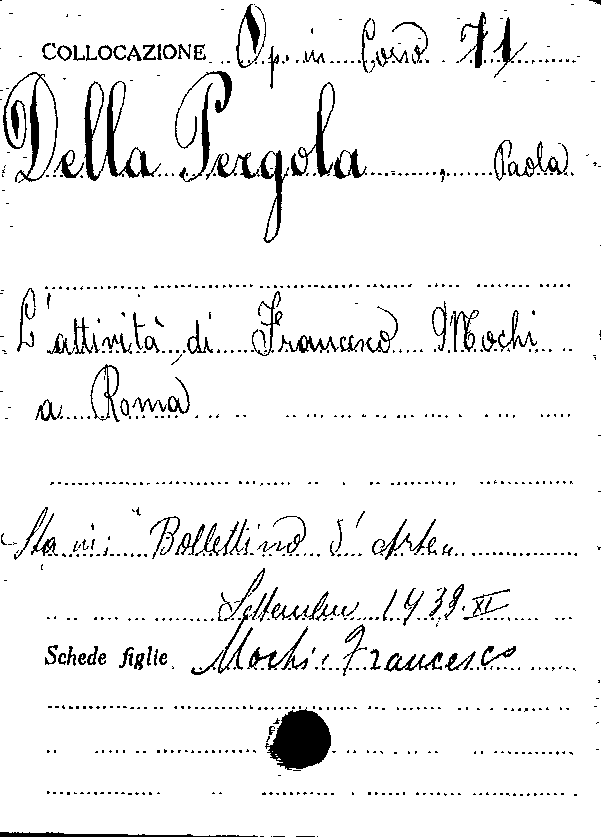 COLLOCAZIONE Op. in Corso 71
Della Pergola, Paola
L'attività di Francesco Mochi
a Roma
Sta in: "Bollettino d'Arte„
Settembre 1933.XI
Schede figlie Mochi, Francesco